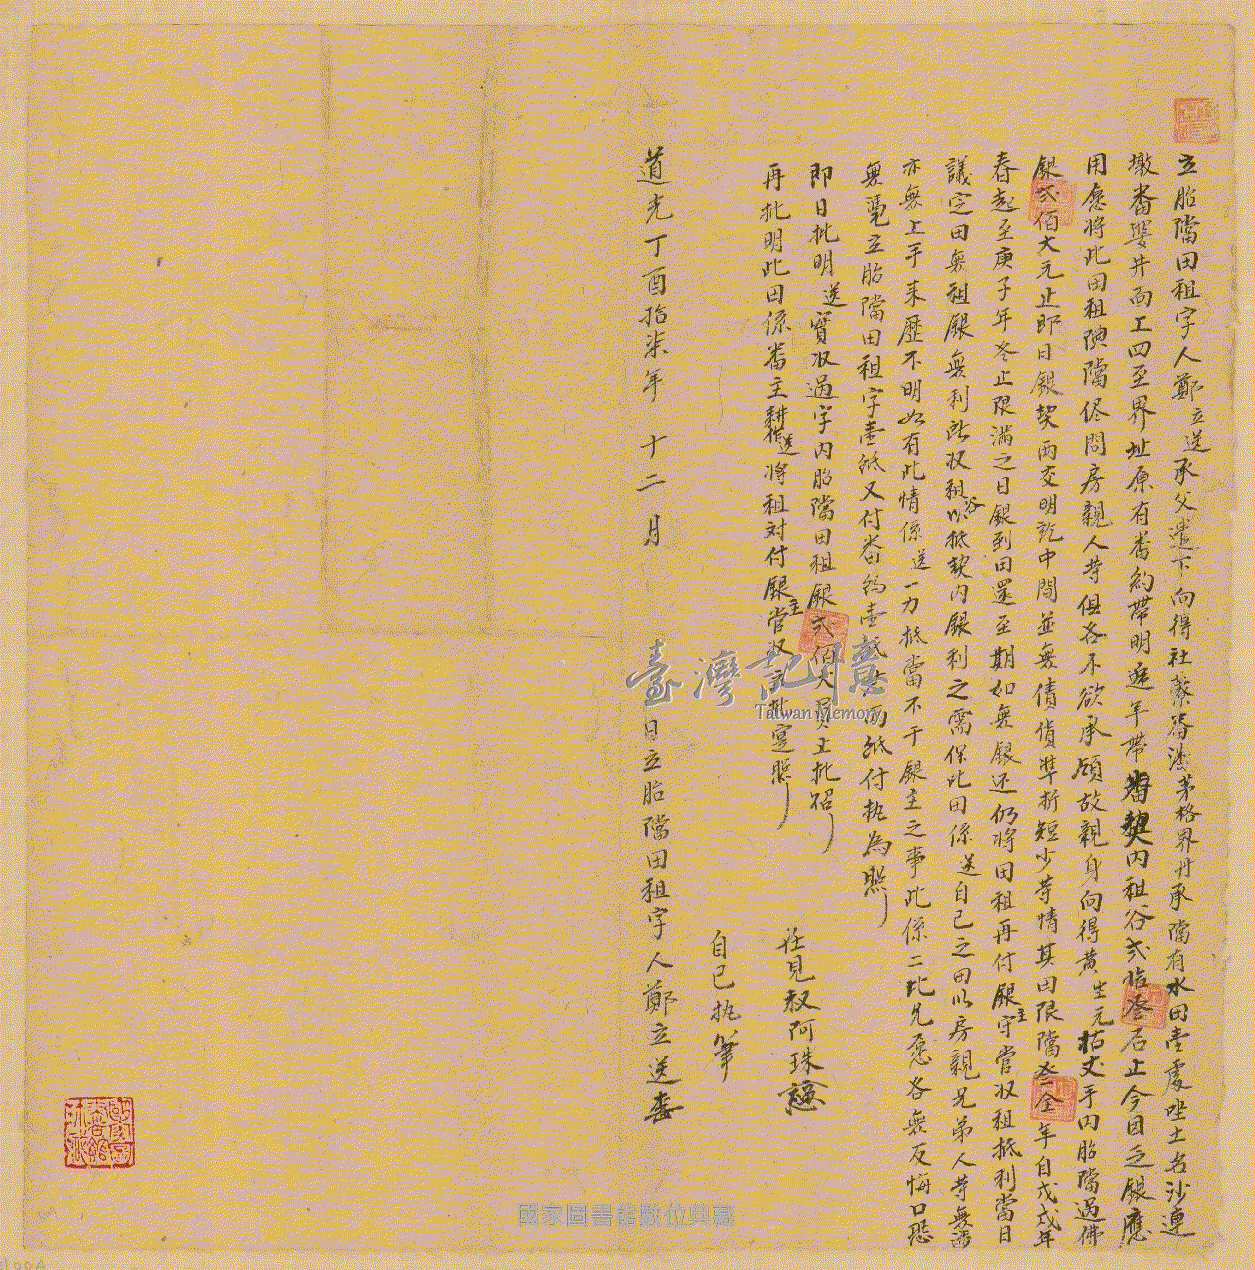 立胎當田租字人鄭立送承父遺下向得社蒙番潘茅格界井承當有水田壹處坐土名沙連
墩番婆井面工四至界址原有番約帶明遞年帶番契內租谷弍拾叁石止今因乏銀應
用愈將此田租陳當侭問房親人等俱各不欲承領故親身向得黃生元枯丈手內胎當過佛
銀弍佰大元止即日銀契兩交明訖中間並無債貨準折短少等情其田限當叁全年自戊戌年
春起至庚子年冬止限滿之日銀到田還至期如無銀还仍將田租再付銀主守當収租抵利當日
議定田無租銀無利所収租谷以抵契內銀利之需保此田係送自己之田以房親兄弟人等無涉
亦無上手来歷不明如有此情係送一力抵當不干銀主之事此係二比兄愿各無反悔口恐
無憑立胎當田租字壹紙又付番約壹紙共兩紙付执為照
即日批明送實収過字內胎當田租銀弍佰大員上批炤
再批明此田係番主耕作送將租対付銀主當収立批定照
在見叔阿珠
自己执筆
道光丁酉拾柒年十二月 日立胎當田租字人鄭立送
臺灣記憶
Taiwan Memory
國家圖書館數位典藏